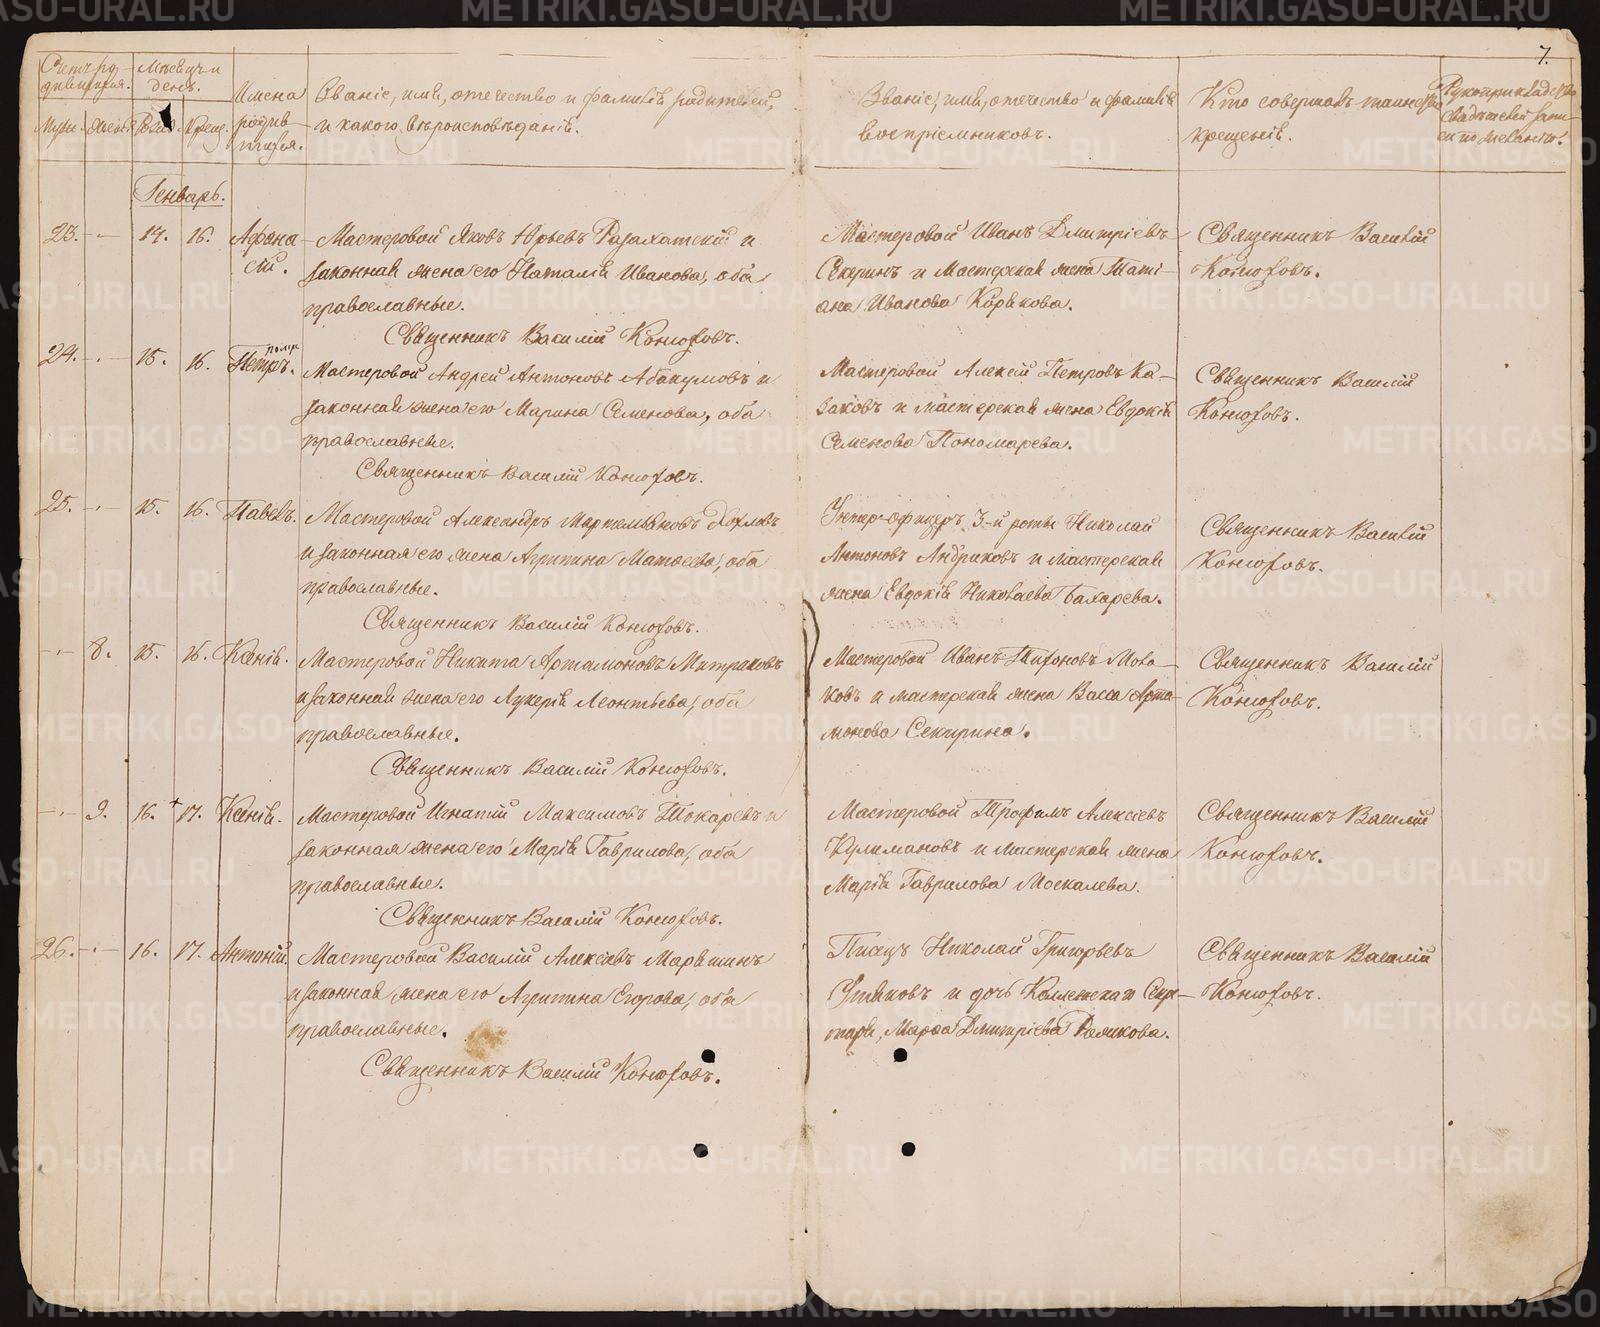 7.
Счетъ ро-
дившихся.
Мѣсяцъ и
день.
Муж. Жен. Рожд. Крещ.
Имена
родив-
шихся.
Званіе, имя, отчество и фамилія родителей,
и какого вѣроисповѣданія.
Званіе, имя, отчество и фамилія
воспріемниковъ.
Кто совершалъ таинство
крещенія.
Рукоприкладство
свидѣтелей запи-
си по желанію.
Генварь.
23. 14. 16. Афана-
сій.
Мастеровой Яковъ Юрьевъ и
законная жена его Наталія Иванова, оба
православные.
Священникъ Василій Конюховъ.
Мастеровой Иванъ Дмитріевъ
Секеринъ и Мастерская жена Тати-
ана Иванова Корякова.
Священникъ Василій
Конюховъ.
24. 15. 16. Петръ.
помре
Мастеровой Андрей Антоновъ Абакумовъ и
законная жена его Марина Семенова, оба
православные.
Священникъ Василій Конюховъ.
Мастеровой Алексей Петровъ Ка-
заковъ и мастерская жена Евдокія
Семенова Пономарева.
Священникъ Василій
Конюховъ.
25. 15. 16. Павелъ.
Мастеровой Александръ Мартемьяновъ Хохловъ
и законная его жена Агрипина Матвеева, оба
православные.
Священникъ Василій Конюховъ.
Унтеръ-офицеръ 3-й роты Николай
Антоновъ Андриковъ и мастерская
жена Евдокія Николаева Бахарева.
Священникъ Василій
Конюховъ.
8. 15. 16. Ксенія.
Мастеровой Никита Артамоновъ Митраковъ
и законная жена его Лукерія Леонтьева, оба
православные.
Священникъ Василій Конюховъ.
Мастеровой Иванъ Тихоновъ
и мастерская жена Васса Арта-
монова Секирина.
Священникъ Василій
Конюховъ.
9. 16. + 17. Ксенія.
Мастеровой Игнатій Максимовъ Токаревъ и
законная жена его Марія Гаврилова, оба
православные.
Священникъ Василій Конюховъ.
Мастеровой Трофимъ Алексіевъ
и мастерская жена
Марія Гаврилова Москалева.
Священникъ Василій
Конюховъ.
26. 16. 17. Антоній.
Мастеровой Василій Алексіевъ Марышинъ
и законная жена его Агрипина Егорова, оба
православные.
Священникъ Василій Конюховъ.
Писецъ Николай Григорьевъ
Ушаковъ и дочь Коллежскаго Секре-
таря, Марѳа Дмитріева
Священникъ Василій
Конюховъ.
METRIKI.GASO-URAL.RU